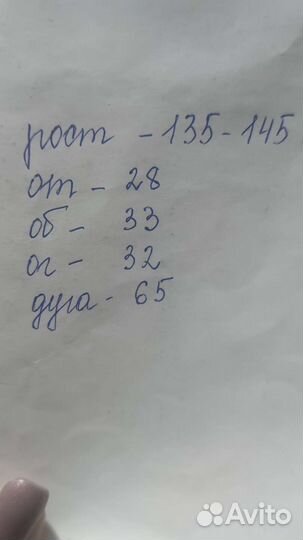 рост - 135-145
от - 28
об - 33
ог - 32
дуга - 65
Avito